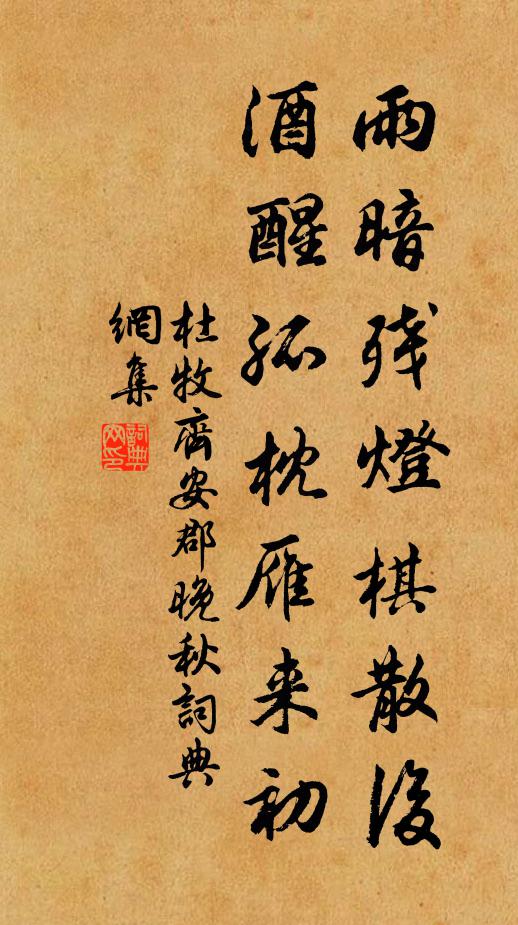 雨暗残燈棋散後
酒醒孤枕雁来初
杜牧齊安郡晚秋詞典
網集
詞典網印